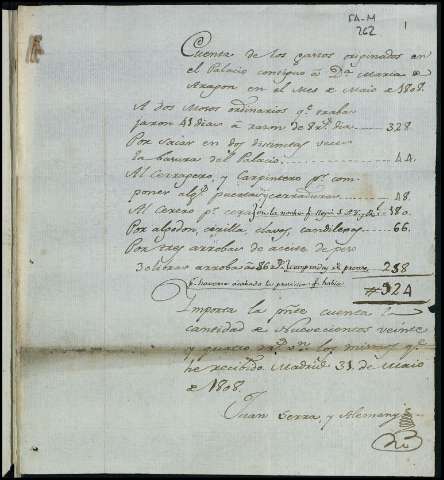 FA-M
262
1
Cuenta de los gastos originados en
el Palacio contiguo a Dª Maria de
Aragon en el Mes de Maio de 1808.
A dos Mosos ordinarios qe. traba
jaron 41 dias a razon de 8 rs. dia 328
Por sacar en dos distintas veces
la basura del Palacio 44
Al Cerragero, y Carpintero pr. com
poner algs. puertas y cerraduras 48
Al Cerero pr. cera la noche q. llegó S. A. 180
Por algodon, cerilla, clavos, candilejas 66
Por tres arrobas de aceite de peso
de libras arroba a 86 rs. compradas de pronto 258
pr. haverse acabado la provision q. habia 924
Importa la pnte cuenta la
cantidad de Nuevecientos veinte
y quatro rs. vn. los mismos qe.
he recibido Madrid 31 de Maio
de 1808.
Juan Serra, y Alemany